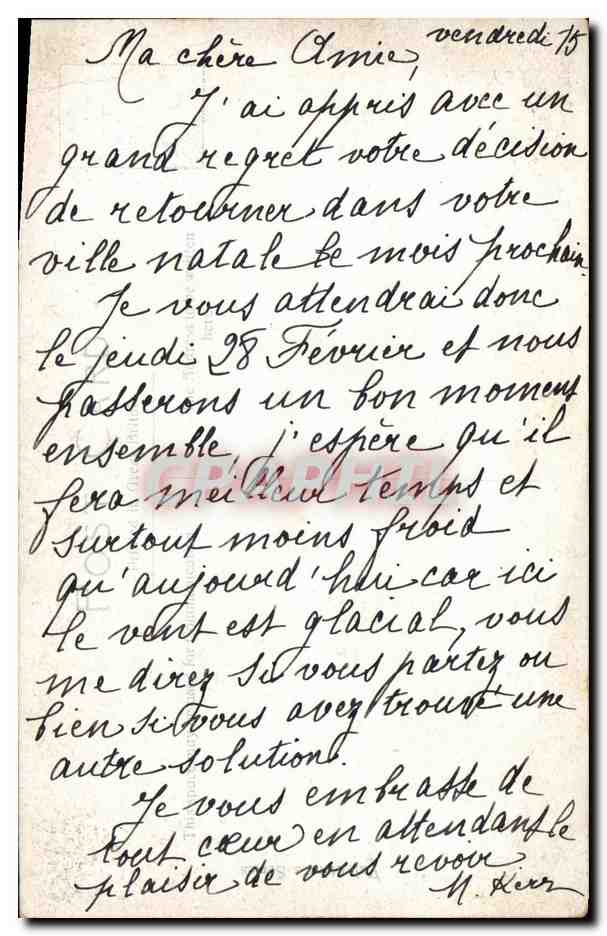 vendredi 15
Ma chère Amie,
J'ai appris avec un
grand regret votre décision
de retourner dans votre
ville natale le mois prochain.
Je vous attendrai donc
le jeudi 28 Février et nous
passerons un bon moment
ensemble, j'espère qu'il
fera meilleur temps et
surtout moins froid
qu'aujourd'hui car ici
le vent est glacial, vous
me direz si vous partez ou
bien si vous avez trouvé une
autre solution.
Je vous embrasse de
tout cœur en attendant le
plaisir de vous revoir
M.